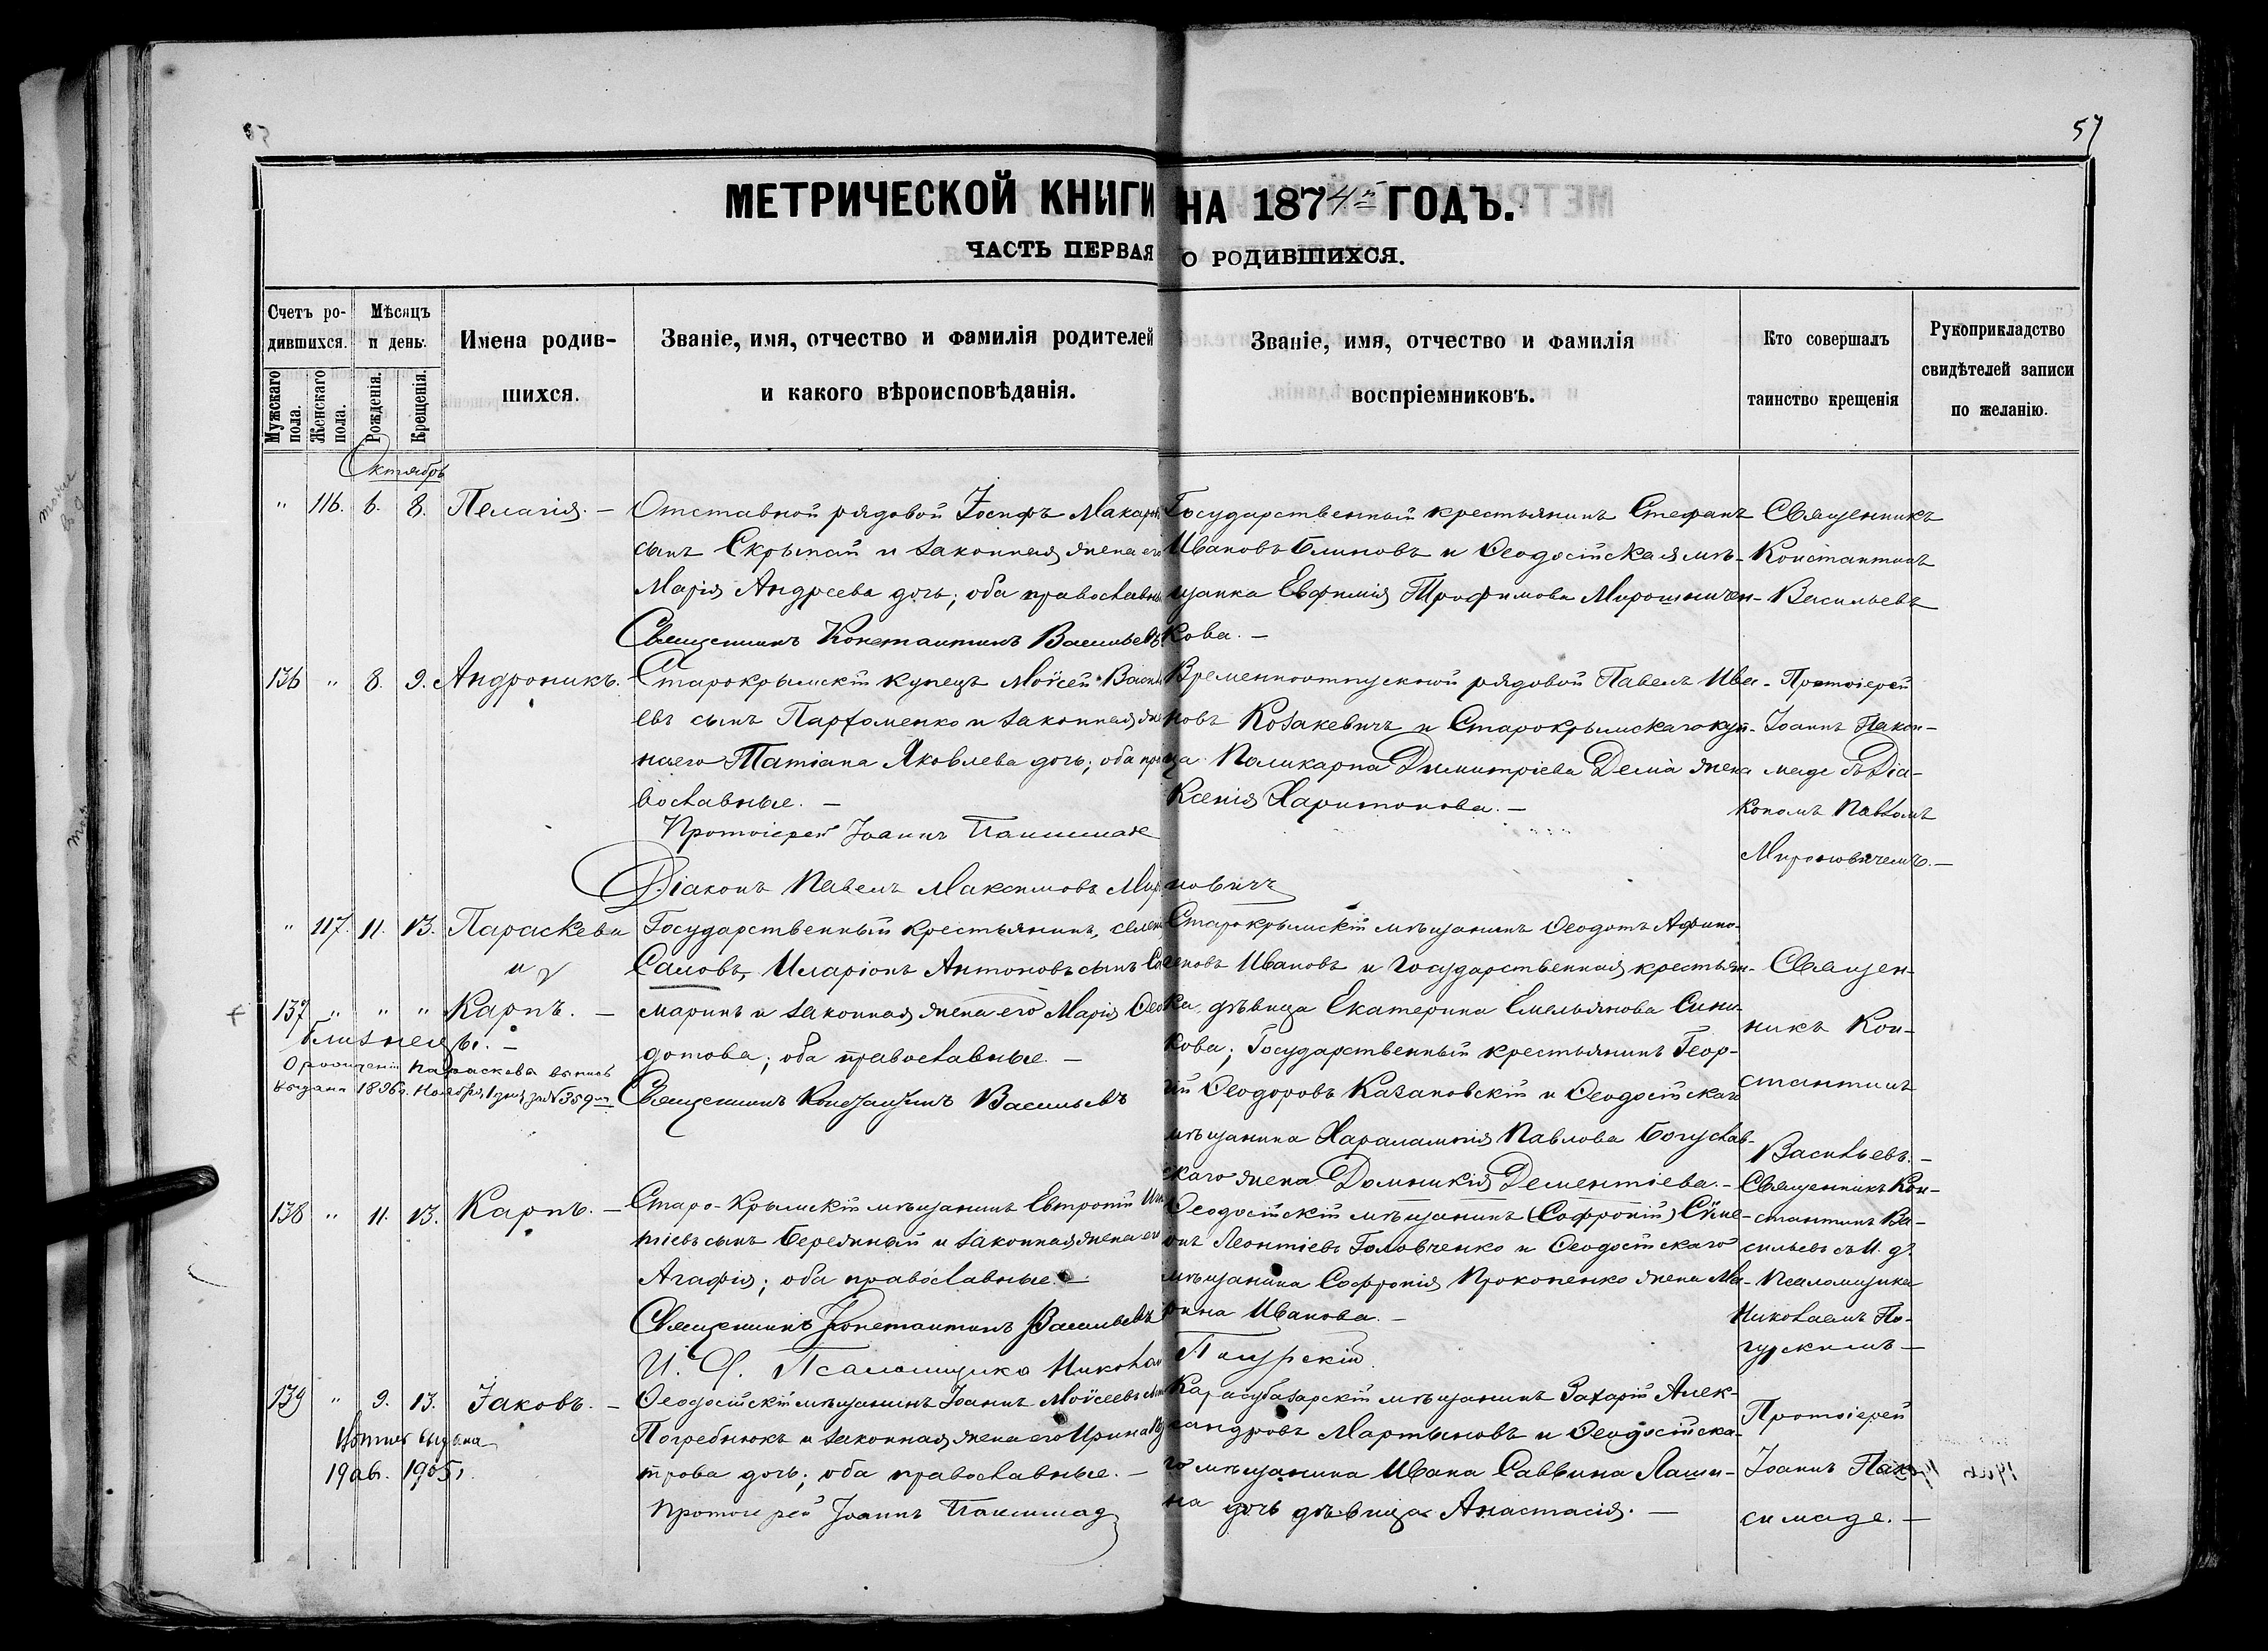 57
МЕТРИЧЕСКОЙ КНИГИ НА 1874й ГОДЪ.
ЧАСТЬ ПЕРВАЯ О РОДИВШИХСЯ.
Счетъ ро-
дившихся.
Мужскаго пола.
Женскаго пола.
Мѣсяцъ
и день.
Рожденія.
Крещенія.
Имена родив-
шихся.
Званіе, имя, отчество и фамилія родителей
и какого вѣроисповѣданія.
Званіе, имя, отчество и фамилія
воспріемниковъ.
Кто совершалъ
таинство крещенія
Рукоприкладство
свидѣтелей записи
по желанію.
Октябрь
" 116. 6. 8. Пелагія. —
Отставной рядовой Іосифъ Макаров
сынъ Скрыпай и законная жена его
Марія Андреева дочь; оба православны
Священникъ Константинъ Васильевъ
Государственный крестьянинъ Стефанъ
Ивановъ Блиновъ и Ѳеодосійская мѣ-
щанка Евфимія Трофимова Мирошничен-
кова. —
Священникъ
Константинъ
Васильевъ
136 " 8. 9. Андроникъ. —
Старокрымскій купецъ Моѵсей Василь
евъ сынъ Парѳоменко и законная же
на его Татіана Яковлева дочь; оба пра
вославные. —
Протоіерей Іоаннъ Паксимаде
Діаконъ Павелъ Максимовъ Миро
новичъ
Временноотпускной рядовой Павелъ Ива-
новъ Козакевичъ и Старокрымскаго куп-
ца Поликарпа Димитріева Деміа жена
Ксенія Харитонова. —
Протоіерей
Іоаннъ Пакси-
маде съ Діа-
кономъ Павломъ
Мироновичемъ. —
" 117. 11. 13. Параскева
и
137 " " " Карпъ. —
близнецы. —
О рожденіи Параскевы выпись
выдана 1896г. Ноября 1 дня за № 359мъ
Государственный крестьянинъ, селен
Саловъ, Иларіонъ Антоновъ сынъ Са
маринъ и законная жена его Марія Ѳео
дотова; оба православные. —
Священникъ Константинъ Васильевъ
Старокрымскій мѣщанинъ Ѳеодотъ Афино-
геновъ Ивановъ и государственная крестьян-
ка, дѣвица Екатерина Емельянова Сини-
кова; Государственный крестьянинъ Геор-
гій Ѳеодоровъ Казановскій и Ѳеодосійскаго
мѣщанина Харалампія Павлова Богуслав-
скаго жена Домникія Дементіева. —
Священ-
никъ Кон-
стантинъ
Васильевъ. —
138 " 11. 13. Карпъ. —
Старо-Крымскій мѣщанинъ Евтропій Иг
тіевъ сынъ Бережный и законная жена его
Агафія; оба православные. —
Священникъ Константинъ Васильевъ
И. Д. Псаломщика Николай Погурскій
Ѳеодосійскій мѣщанинъ (Софроній) Сѵме-
онъ Леонтіевъ Головченко и Ѳеодосійскаго
мѣщанина Софронія Прокопенко жена Ма-
рина Иванова. —
Священникъ Кон-
стантинъ Ва-
сильевъ съ И. д.
Псаломщика
Николаемъ По-
гурскимъ —
139 " 9. 13. Іаковъ. —
Копия выдана
19 ав. 1905 г.
Ѳеодосійскій мѣщанинъ Іоаннъ Моѵсеевъ сынъ
Погребнюкъ и законная жена его Ирина
трова дочь; оба православные. —
Протоіерей Іоаннъ Паксимад
Карасубазарскій мѣщанинъ Захарій Алек-
сандровъ Мартыновъ и Ѳеодосійска-
го мѣщанина Ивана Саввина Лаши-
на дочь дѣвица Анастасія. —
Протоіерей
Іоаннъ Пак-
симаде. —